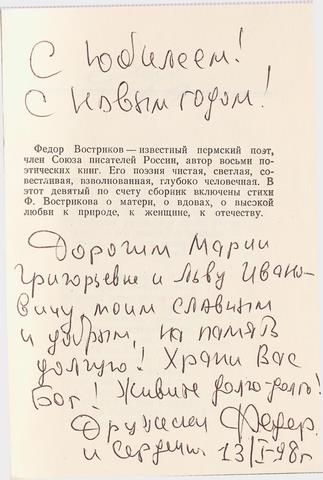 С юбилеем!
С Новым годом!
Федор Востриков — известный пермский поэт,
член Союза писателей России, автор восьми по-
этических книг. Его поэзия чистая, светлая, со-
вестливая, взволнованная, глубоко человечная. В
этот девятый по счету сборник включены стихи
Ф. Вострикова о матери, о вдовах, о высокой
любви к природе, к женщине, к отечеству.
Дорогим Марии
Григорьевне и Льву Ивано-
вичу, моим славным
и добрым, на память
долгую! Храни Вас
Бог! Живите долго-долго!
Дружески Федор.
и сердечно 13/I-98г